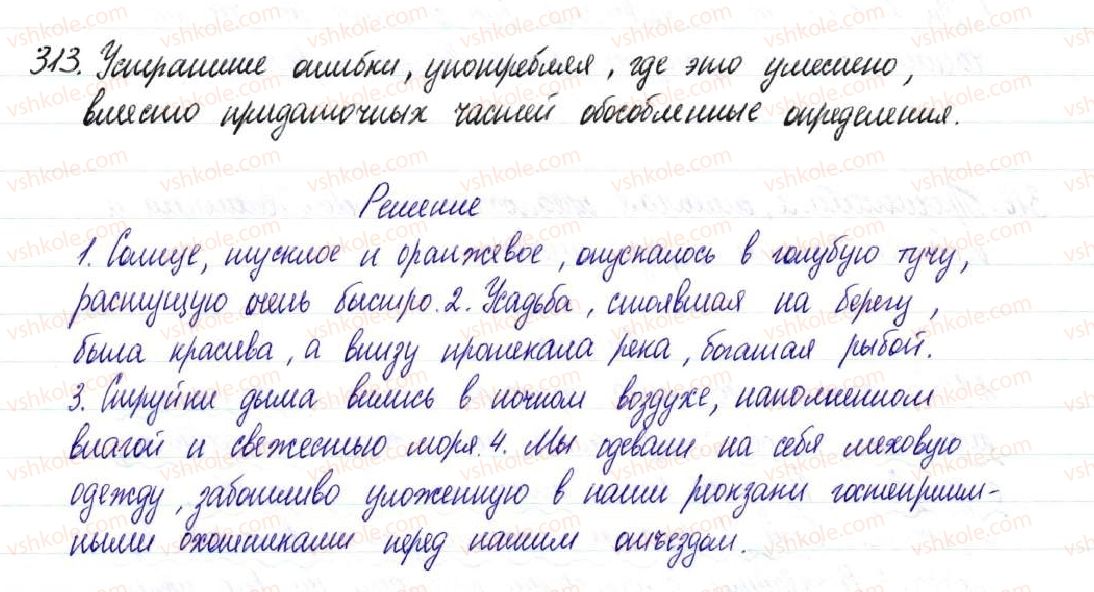 313. Устраните ошибки, употребляя, где это уместно,
вместо придаточных частей обособленные определения.
Решение
1. Солнце, тусклое и оранжевое, опускалось в голубую тучу,
растущую очень быстро. 2. Усадьба, стоявшая на берегу,
была красива, а внизу протекала река, богатая рыбой.
3. Струйки дыма вились в ночном воздухе, наполненном
влагой и свежестью моря. 4. Мы одевали на себя меховую
одежду, заботливо уложенную в наши рюкзаки гостеприим-
ными охотниками перед нашим отъездом.